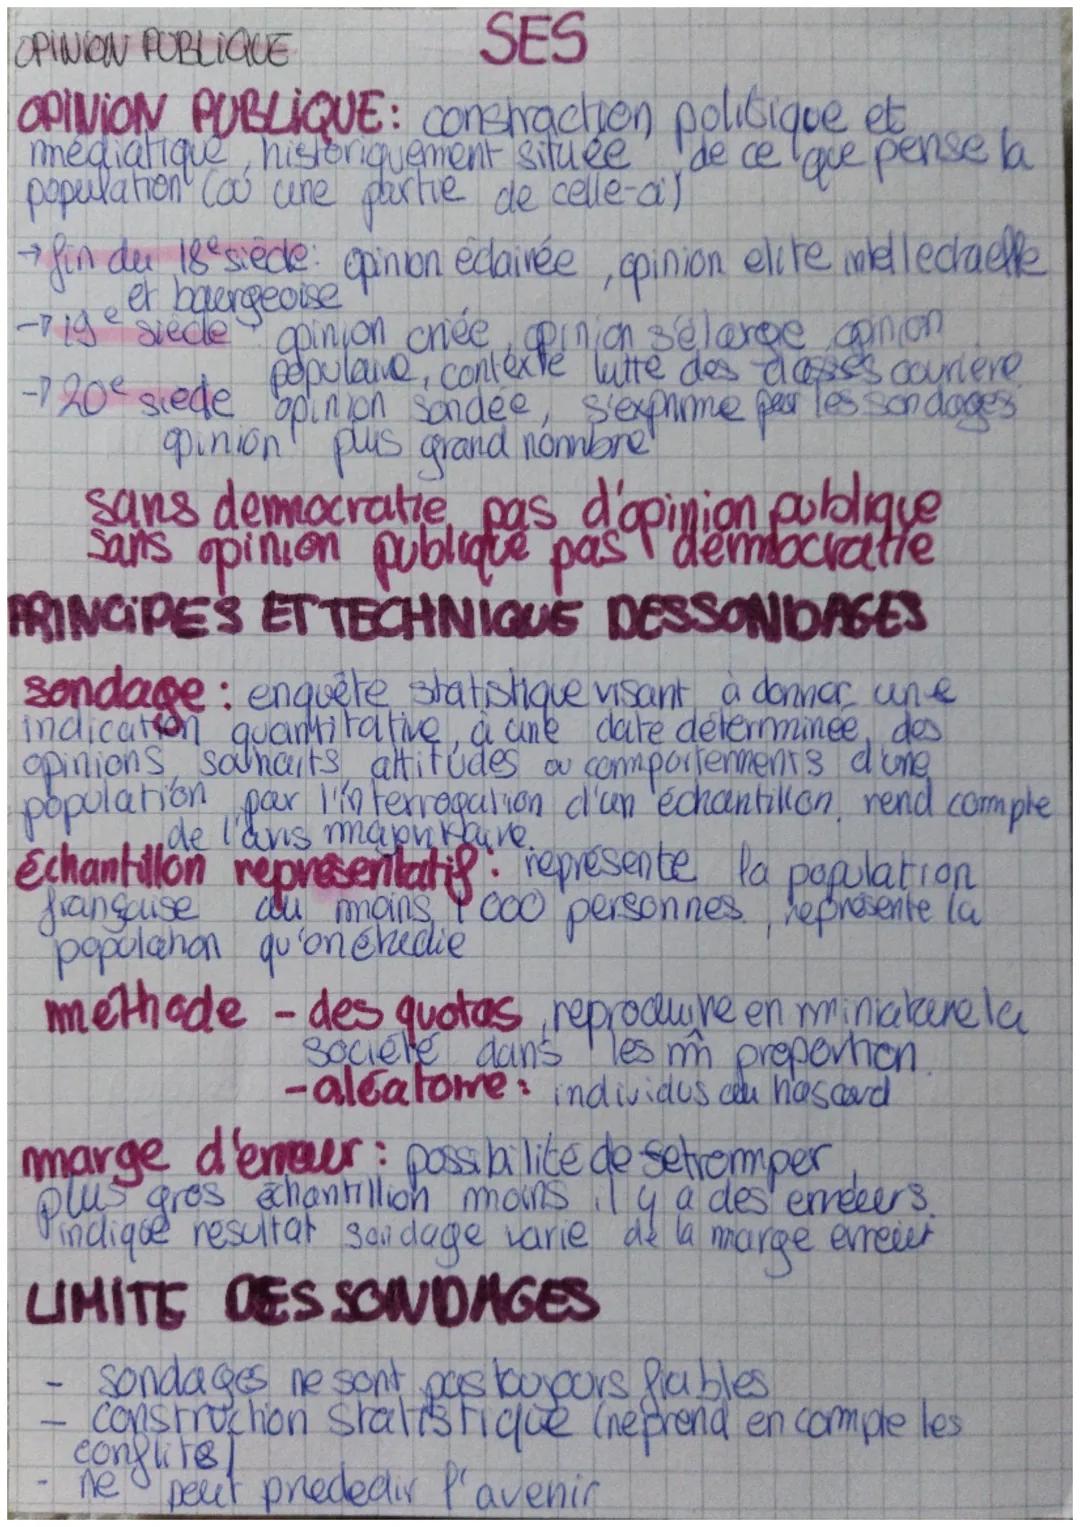 SES
OPINION PUBLIQUE
OPINION PUBLIQUE: construction politique et
médiatique, historiquement située de ce que pense la
population (où une partie de celle-ci)
→ fin du 18e siècle: opinion éclairée, opinion elite intellectuelle
et bourgeoise
→ 19e siècle opinion criée, opinion s'élarge opinion
populaire, contexte lutte des classes ouvrière
→ 20e siecle opinion sondée, s'exprime par les sondages
opinion plus grand nombre
sans democratie, pas d'opinion publique
sans opinion publique pas democratie
PRINCIPES ET TECHNIQUE DES SONDAGES
sondage: enquête statistique visant à donner une
indication quantitative, à une date déterminée, des
opinions, souhaits, attitudes ou comportements d'une
population par l'interrogation d'un échantillon, rend compte
de l'avis majoritaire.
échantillon représentatif: représente la population
française au moins 1 000 personnes, représente la
population qu'on étudie
méthode - des quotas, reproduire en miniature la
société dans les m̂ proportion.
- aléatoire: individus au hasard
marge d'erreur: possibilité de se tromper,
plus gros échantillion moins il y a des erreeurs.
indique resultat sondage varie de la marge erreur
LIMITE DES SONDAGES
- sondages ne sont pas toujours fiables
- construction statistique (ne prend en compte les
conflits)
- ne peut prédedir l'avenir